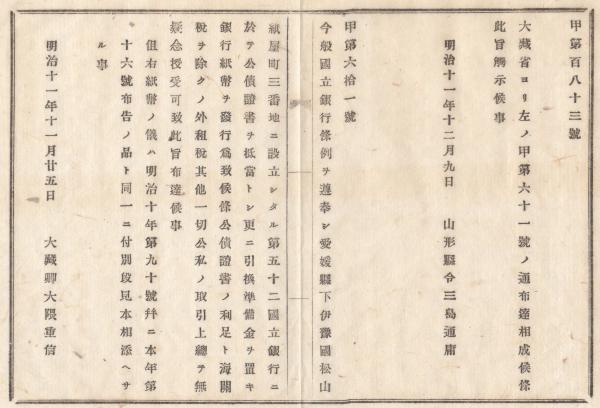 甲第百八十三號
大藏省ヨリ左ノ甲第六十一號ノ通布達相成候條
此旨觸示候事
明治十一年十二月九日　山形縣令三島通庸
甲第六拾一號
今般國立銀行條例ヲ遵奉シ愛媛縣下伊豫國松山
紙屋町三番地ニ設立シタル第五十二國立銀行ニ
於テ公債證書ヲ抵當トシ更ニ引換準備金ヲ置キ
銀行紙幣ヲ發行爲致候條公債證書ノ利足ト海關
稅ヲ除クノ外租稅其他一切公私ノ取引上總テ無
疑念授受可致此旨布達候事
但右紙幣ノ儀ハ明治十年第九十號幷ニ本年第
十六號布告ノ品ト同一ニ付別段見本相添ヘサ
ル事
明治十一年十一月廿五日　大藏卿大隈重信